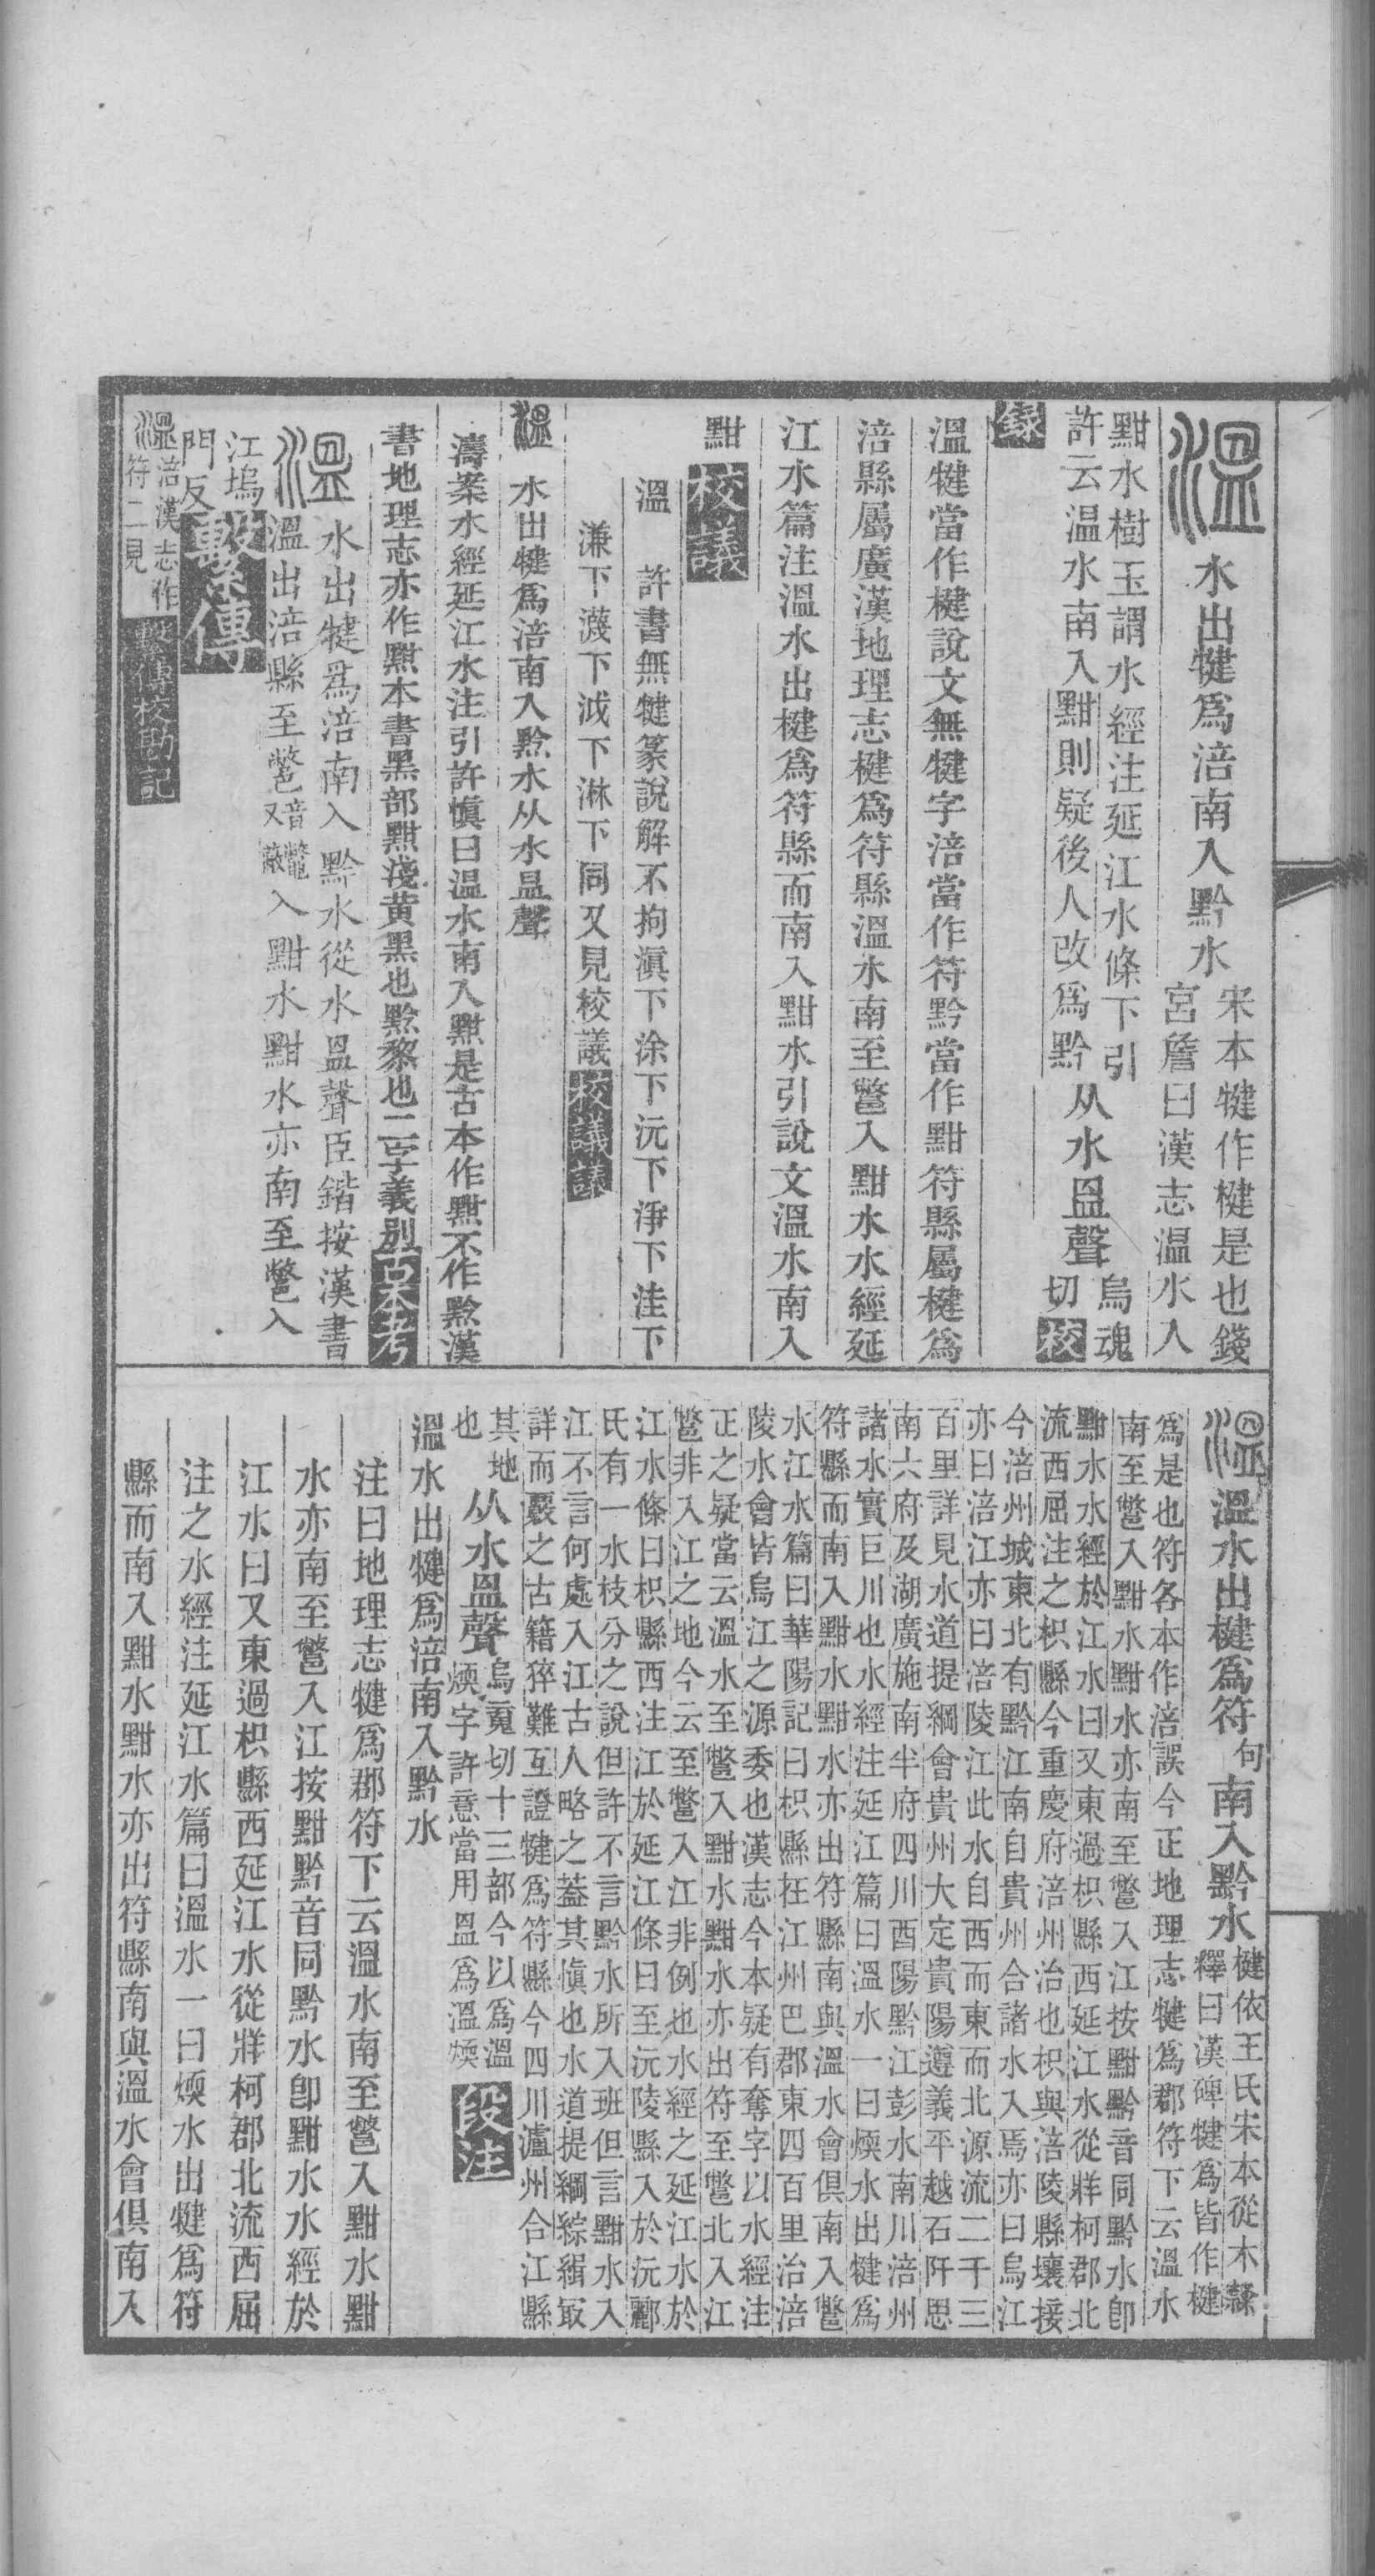 溫 水出犍爲涪南入黔水
宋本犍作楗是也錢
宮詹曰漢志溫水入
黚水樹玉謂水經注延江水條下引
許云溫水南入黚則疑後人改爲黔
从水𥁕聲
烏魂
切
校
錄
溫犍當作楗說文無犍字涪當作符黔當作黚符縣屬楗爲
涪縣屬廣漢地理志楗爲符縣溫水南至鄨入黚水水經延
江水篇注溫水出楗爲符縣而南入黚水引說文溫水南入
黚 校議
溫 許書無犍篆說解不拘滇下涂下沅下淨下洼下
溓下濊下泧下淋下同又見校議 校議議
溫 水出犍爲涪南入黔水从水𥁕聲
濤案水經延江水注引許愼曰溫水南入黚是古本作黚不作黔漢
書地理志亦作黚本書黑部黚淺黄黑也黔黎也二字義別 古本考
溫 水出犍爲涪南入黔水從水𥁕聲臣鍇按漢書
溫出涪縣至鄨音鼈又蔽入黚水黚水亦南至鄨入
江塢
門反
繫傳
溫 涪漢志作
符二見
繫傳校勘記
溫 溫水出楗爲符句南入黔水
楗依王氏宋本從木隸
釋曰漢碑犍爲皆作楗
爲是也符各本作涪誤今正地理志犍爲郡符下云溫水
南至鄨入黚水黚水亦南至鄨入江按黚黔音同黔水卽
黚水水經於江水曰又東過枳縣西延江水從牂柯郡北
流西屈注之枳縣今重慶府涪州治也枳與涪陵縣壤接
今涪州城東北有黔江南自貴州合諸水入焉亦曰烏江
亦曰涪江亦曰涪陵江此水自西而東而北源流二千三
百里詳見水道提綱會貴州大定貴陽遵義平越石阡思
南六府及湖廣施南半府四川酉陽黔江彭水南川涪州
諸水實巨川也水經注延江篇曰溫水一曰煗水出犍爲
符縣而南入黚水黚水亦出符縣南與溫水會俱南入鄨
水江水篇曰華陽記曰枳縣在江州巴郡東四百里治涪
陵水會皆烏江之源委也漢志今本疑有奪字以水經注
正之疑當云溫水至鄨入黚水黚水亦出符至鄨北入江
鄨非入江之地今云至鄨入江非例也水經之延江水於
江水條曰枳縣西注江於延江條曰至沅陵縣入於沅酈
氏有一水枝分之說但許不言黔水所入班但言黚水入
江不言何處入江古人略之葢其愼也水道提綱綜緝㝡
詳而覈之古籍猝難互證犍爲符縣今四川瀘州合江縣
其地
也
从水𥁕聲
烏䰟切十三部今以爲溫
煗字許意當用𥁕爲溫煗
段注
溫水出犍爲涪南入黔水
注曰地理志犍爲郡符下云溫水南至鄨入黚水黚
水亦南至鄨入江按黚黔音同黔水卽黚水水經於
江水曰又東過枳縣西延江水從牂柯郡北流西屈
注之水經注延江水篇曰溫水一曰煗水出犍爲符
縣而南入黚水黚水亦出符縣南與溫水會俱南入